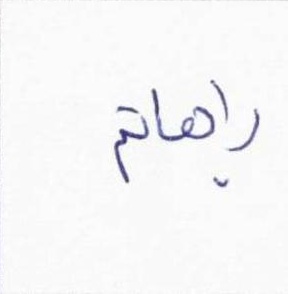 رايهاتم